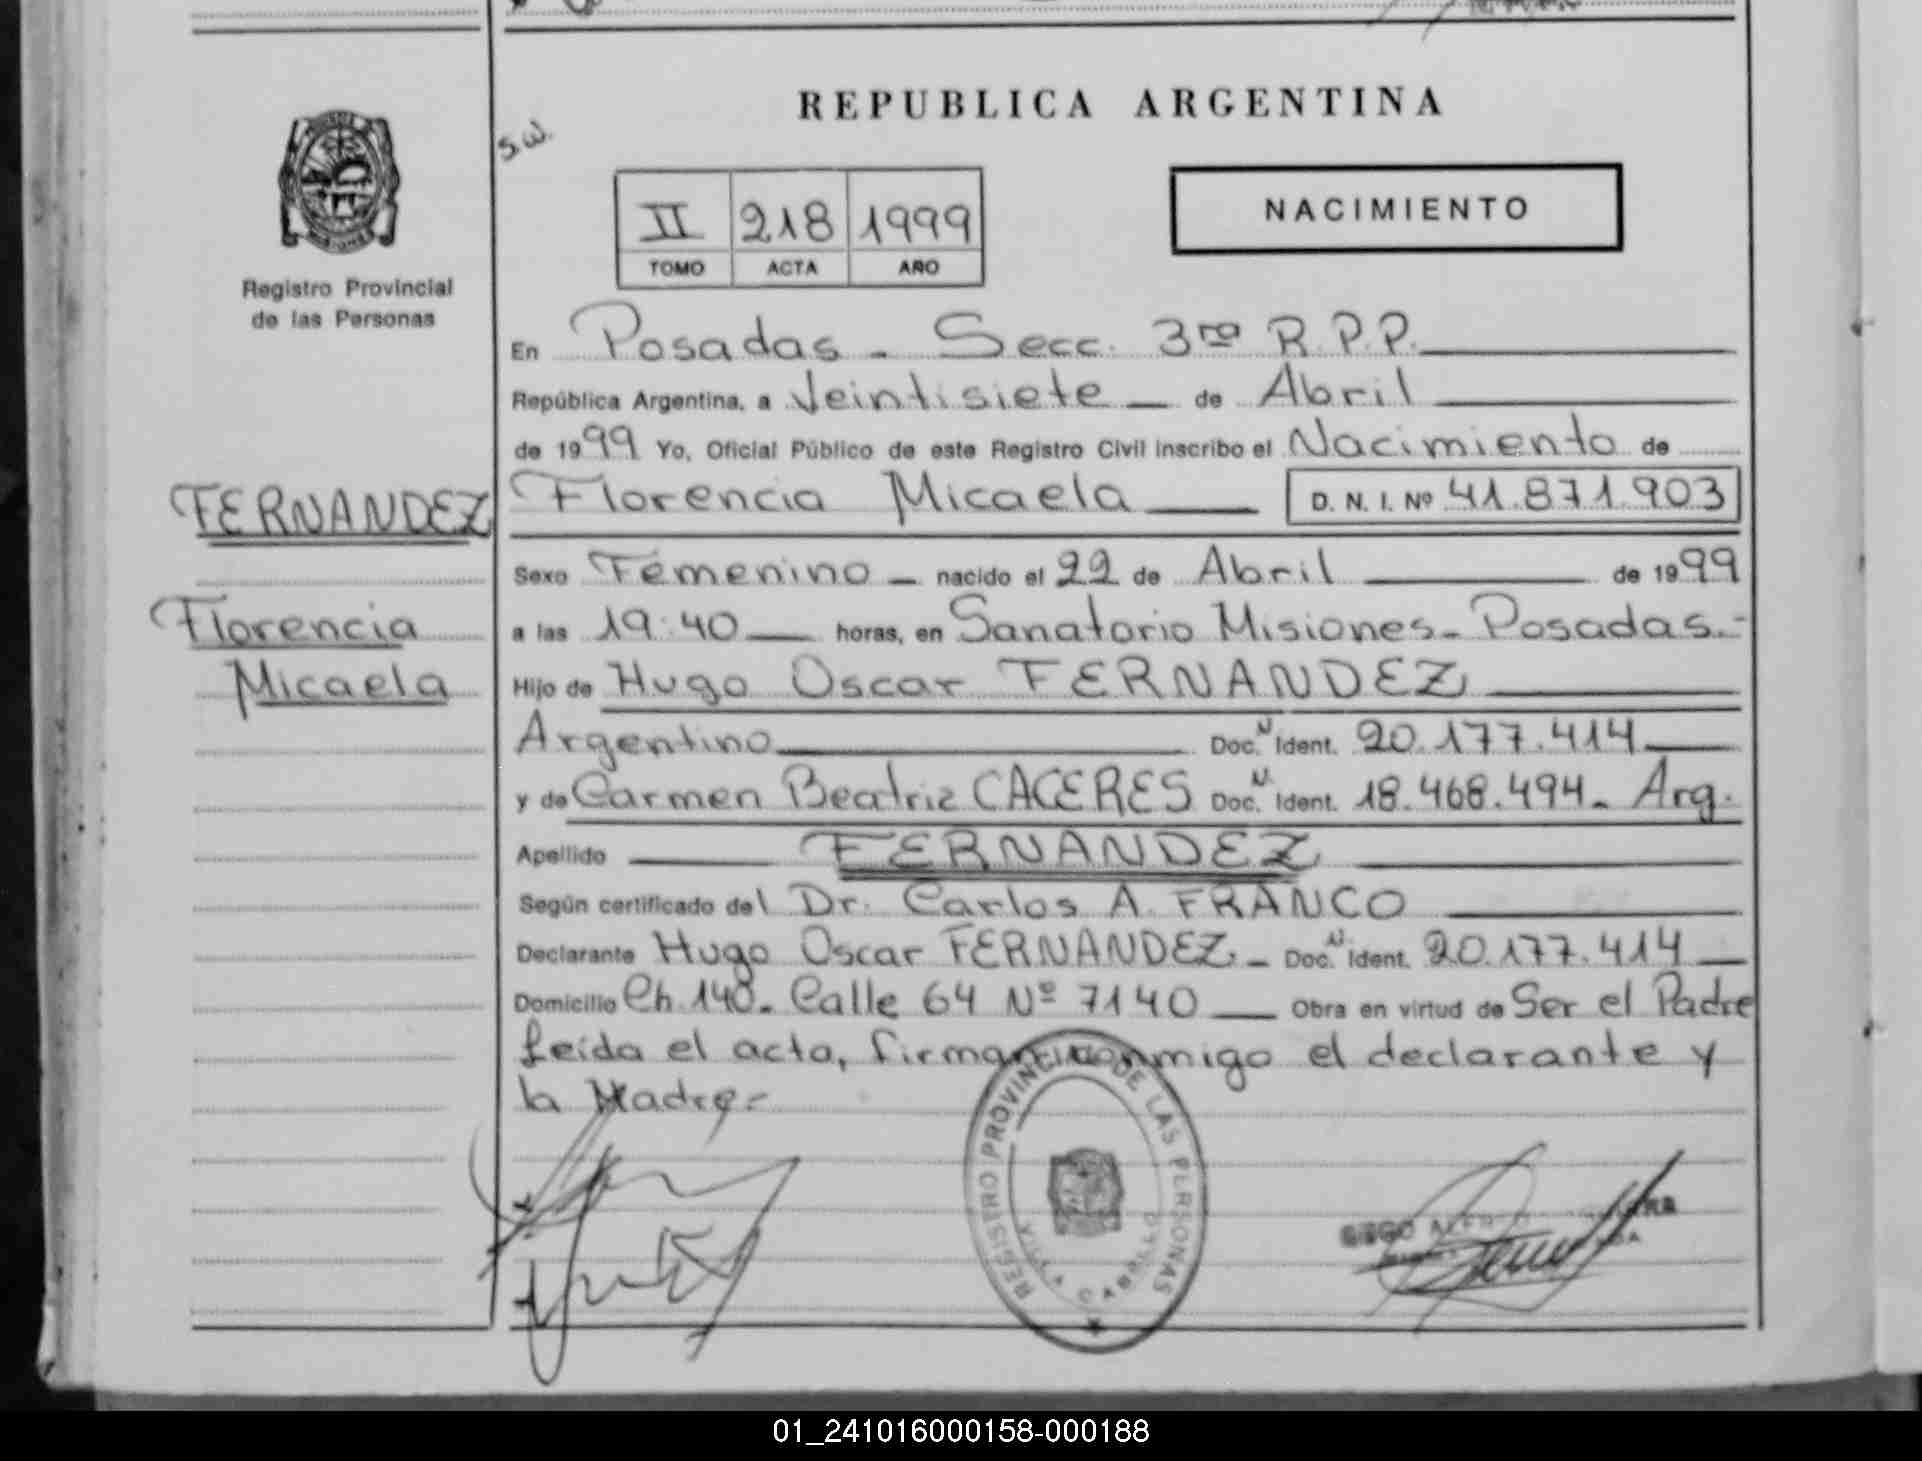 REPUBLICA ARGENTINA
S.W.
II 218 1999
TOMO ACTA AÑO
NACIMIENTO
Registro Provincial
de las Personas
En Posadas - Secc. 3ra R.P.P.
República Argentina, a Veintisiete - de Abril
de 1999 Yo, Oficial Público de este Registro Civil inscribo el Nacimiento de
Florencia Micaela D. N. I. Nº 41.871.903
FERNANDEZ
Florencia
Micaela
Sexo Femenino - nacido el 22 de Abril de 1999
a las 19:40 horas, en Sanatorio Misiones - Posadas.-
Hijo de Hugo Oscar FERNANDEZ
Argentino Doc. N Ident. 20.177.414
y de Carmen Beatriz CACERES Doc. N. Ident. 18.468.494 - Arg.
Apellido FERNANDEZ
Según certificado del Dr. Carlos A. FRANCO
Declarante Hugo Oscar FERNANDEZ - Doc. N Ident. 20.177.414
Domicilio Ch. 140 - Calle 64 Nº 7140 Obra en virtud de Ser el Padre
Leída el acta, firman conmigo el declarante y
la Madre.-
REGISTRO PROVINCIAL DE LAS PERSONAS
VILLA CABELLO
01_241016000158-000188